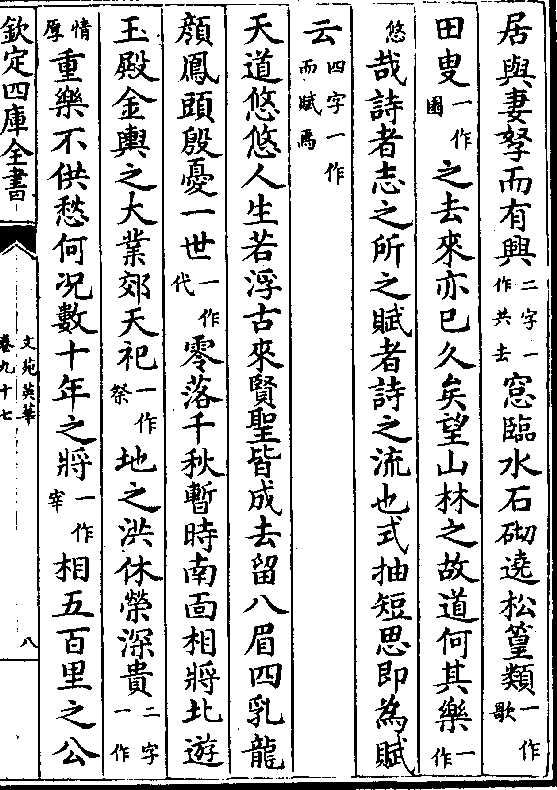 居與妻孥而有興二字一作共去窓臨水石砌遶松篁類一作歌
田叟一作園之去來亦已久矣望山林之故道何其樂一作
悠哉詩者志之所之賦者詩之流也式抽短思即為賦
云四字一作而賦焉
天道悠悠人生若浮古來賢聖皆成去留八眉四乳龍
顔鳳頭殷憂一世一作代零落千秋暫時南面相將北遊
玉殿金輿之大業郊天祀一作祭地之洪休榮深貴二字一作
情厚重樂不供愁何况數十年之將一作宰相五百里之公
欽定四庫全書
文苑英華
卷九十七
八